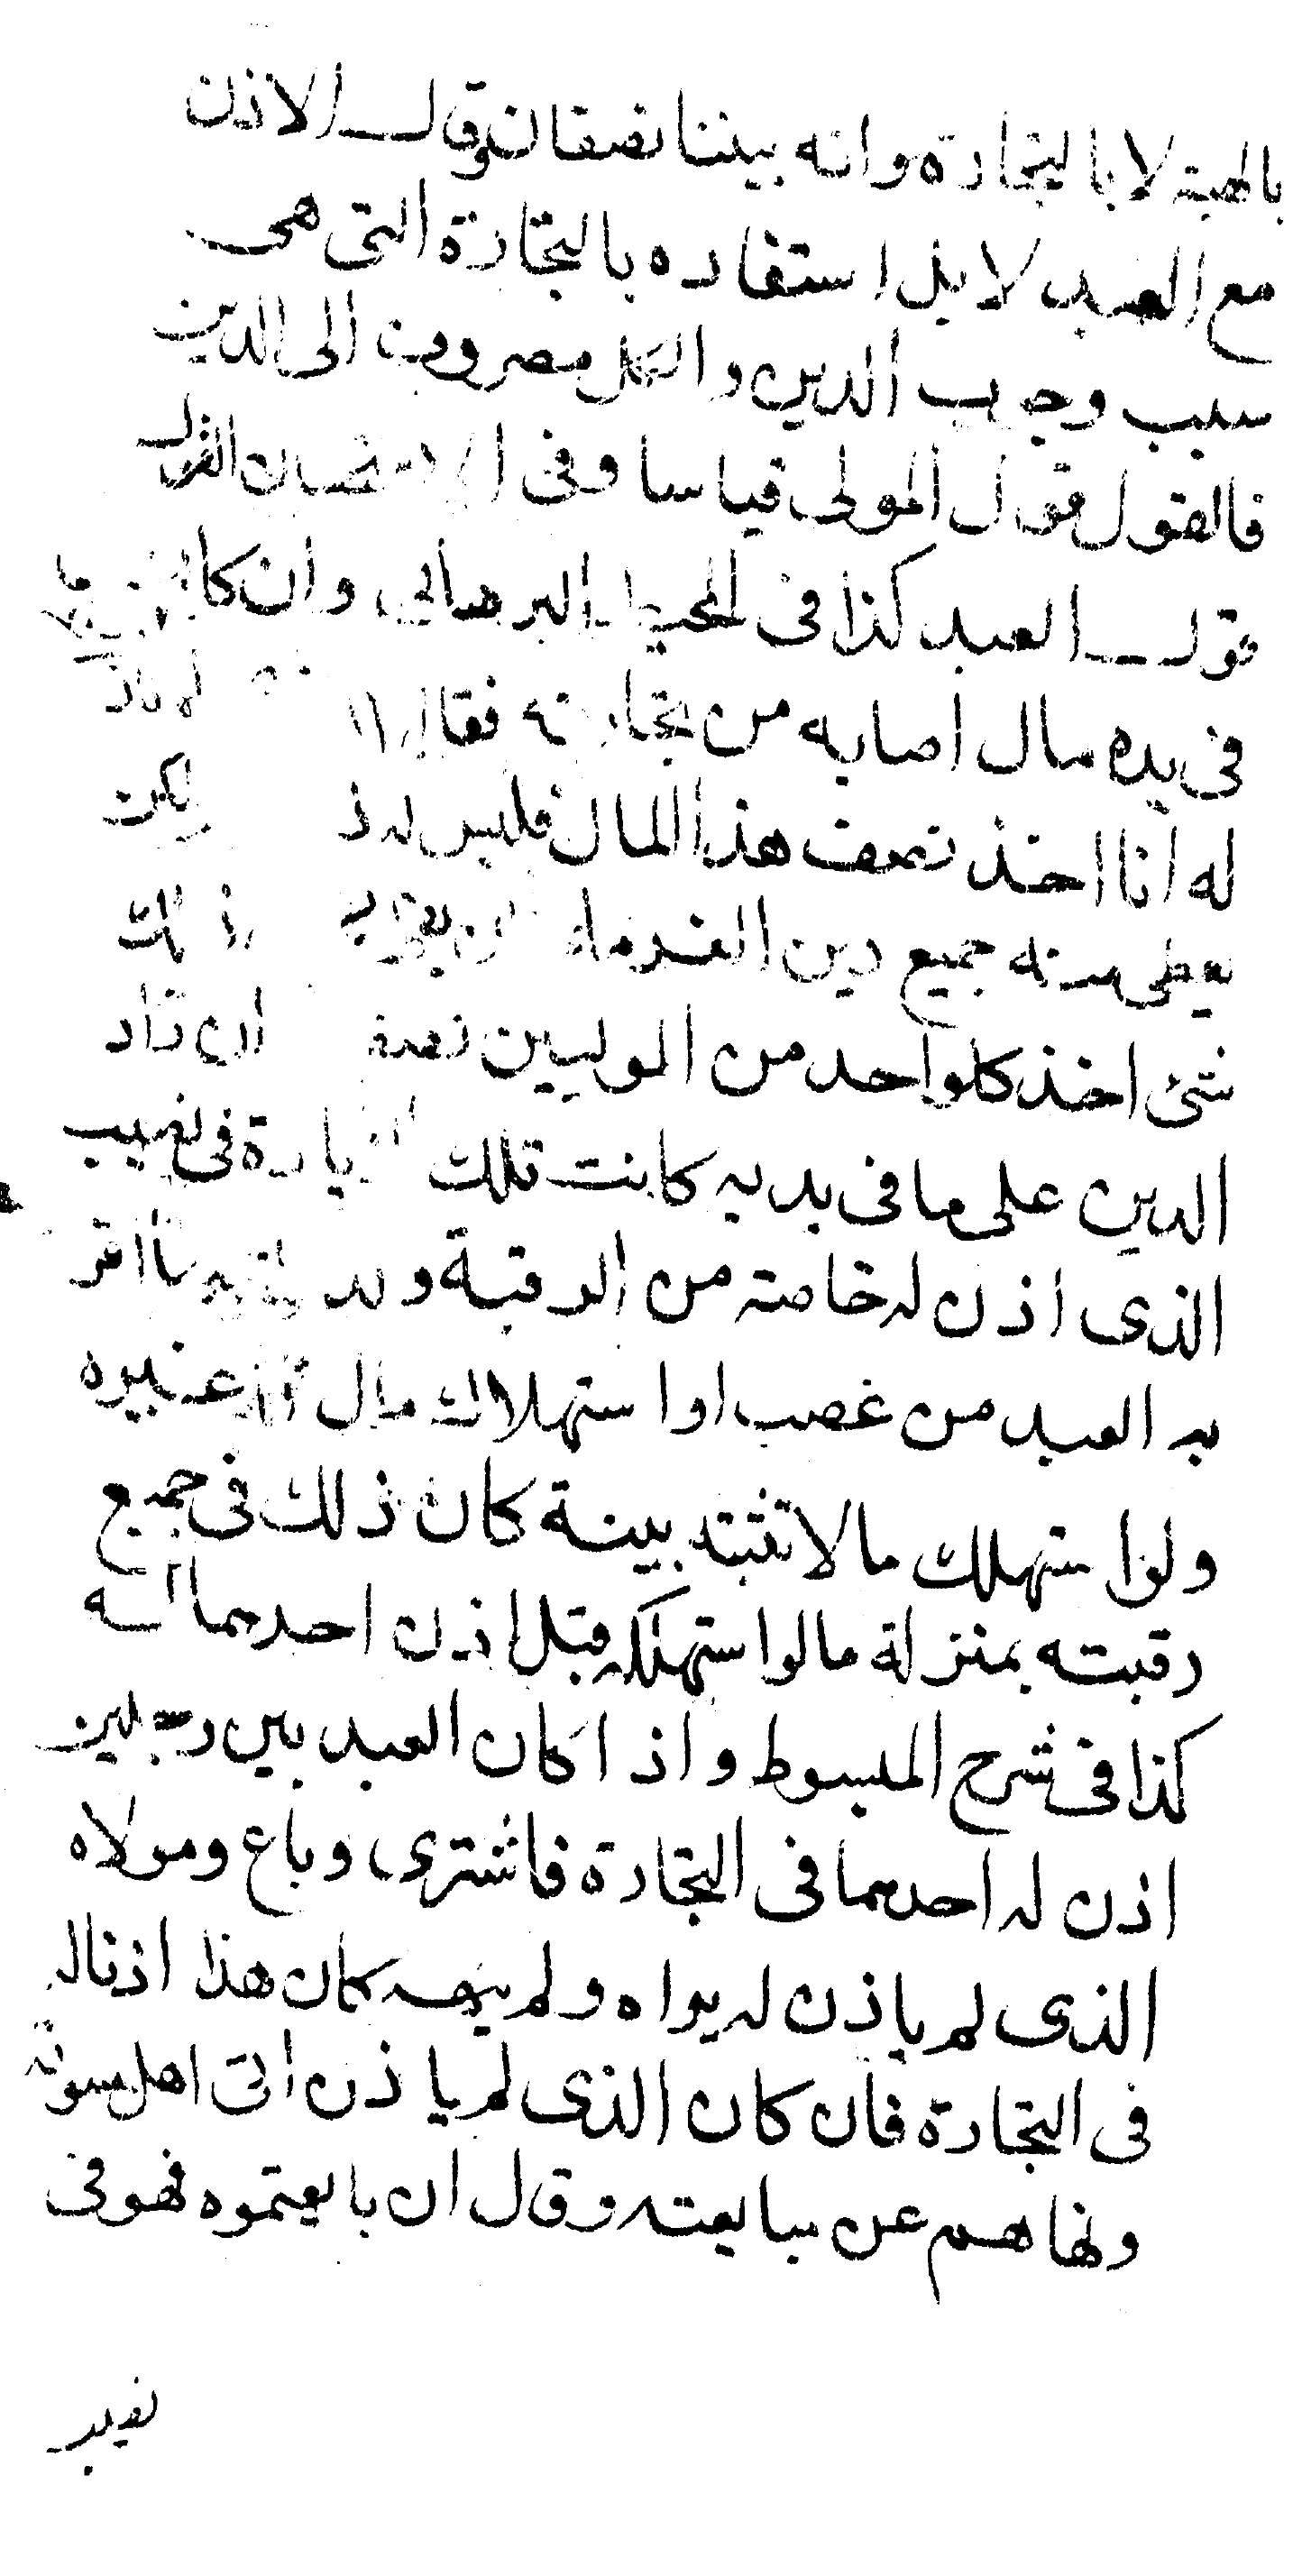 بالهبة لا بالتجارة وانه بيننا نصفان وقال الاذن
مع العبد لا بل استفاده بالتجارة التى هى
سبب وجوب الدين والكل مصروف الى الدين
فالقول قول المولى قياسا وفى الاستحسان القول
قول العبد كذا فى المحيط البرهانى وان كان
فى يده مال اصابه من تجارته فقال
له انا اخذ نصف هذا المال فليس له ذ لكن
يعطى منه جميع دين الغرماء
شئ اخذ كل واحد من الموليين نصفه زاد
الدين على ما فى يديه كانت تلك الزيادة فى نصيب
الذى اذن له خاصة من الرقبة و ما اقر
به العبد من غصب او استهلاك مال او غيره
ولو استهلك مالا تثبته بينة كان ذلك فى جميع
رقبته بمنزلة ما لو استهلكه قبل اذن احدهما له
كذا فى شرح المبسوط واذا كان العبد بين رجلين
اذن له احدهما فى التجارة فاشترى وباع ومولاه
الذى لم ياذن له يراه ولم ينهه كان هذا اذنا له
فى التجارة فان كان الذى لم ياذن اتى اهل سوقه
ونهاهم عن مبايعته وقال ان بايعتموه فهو فى